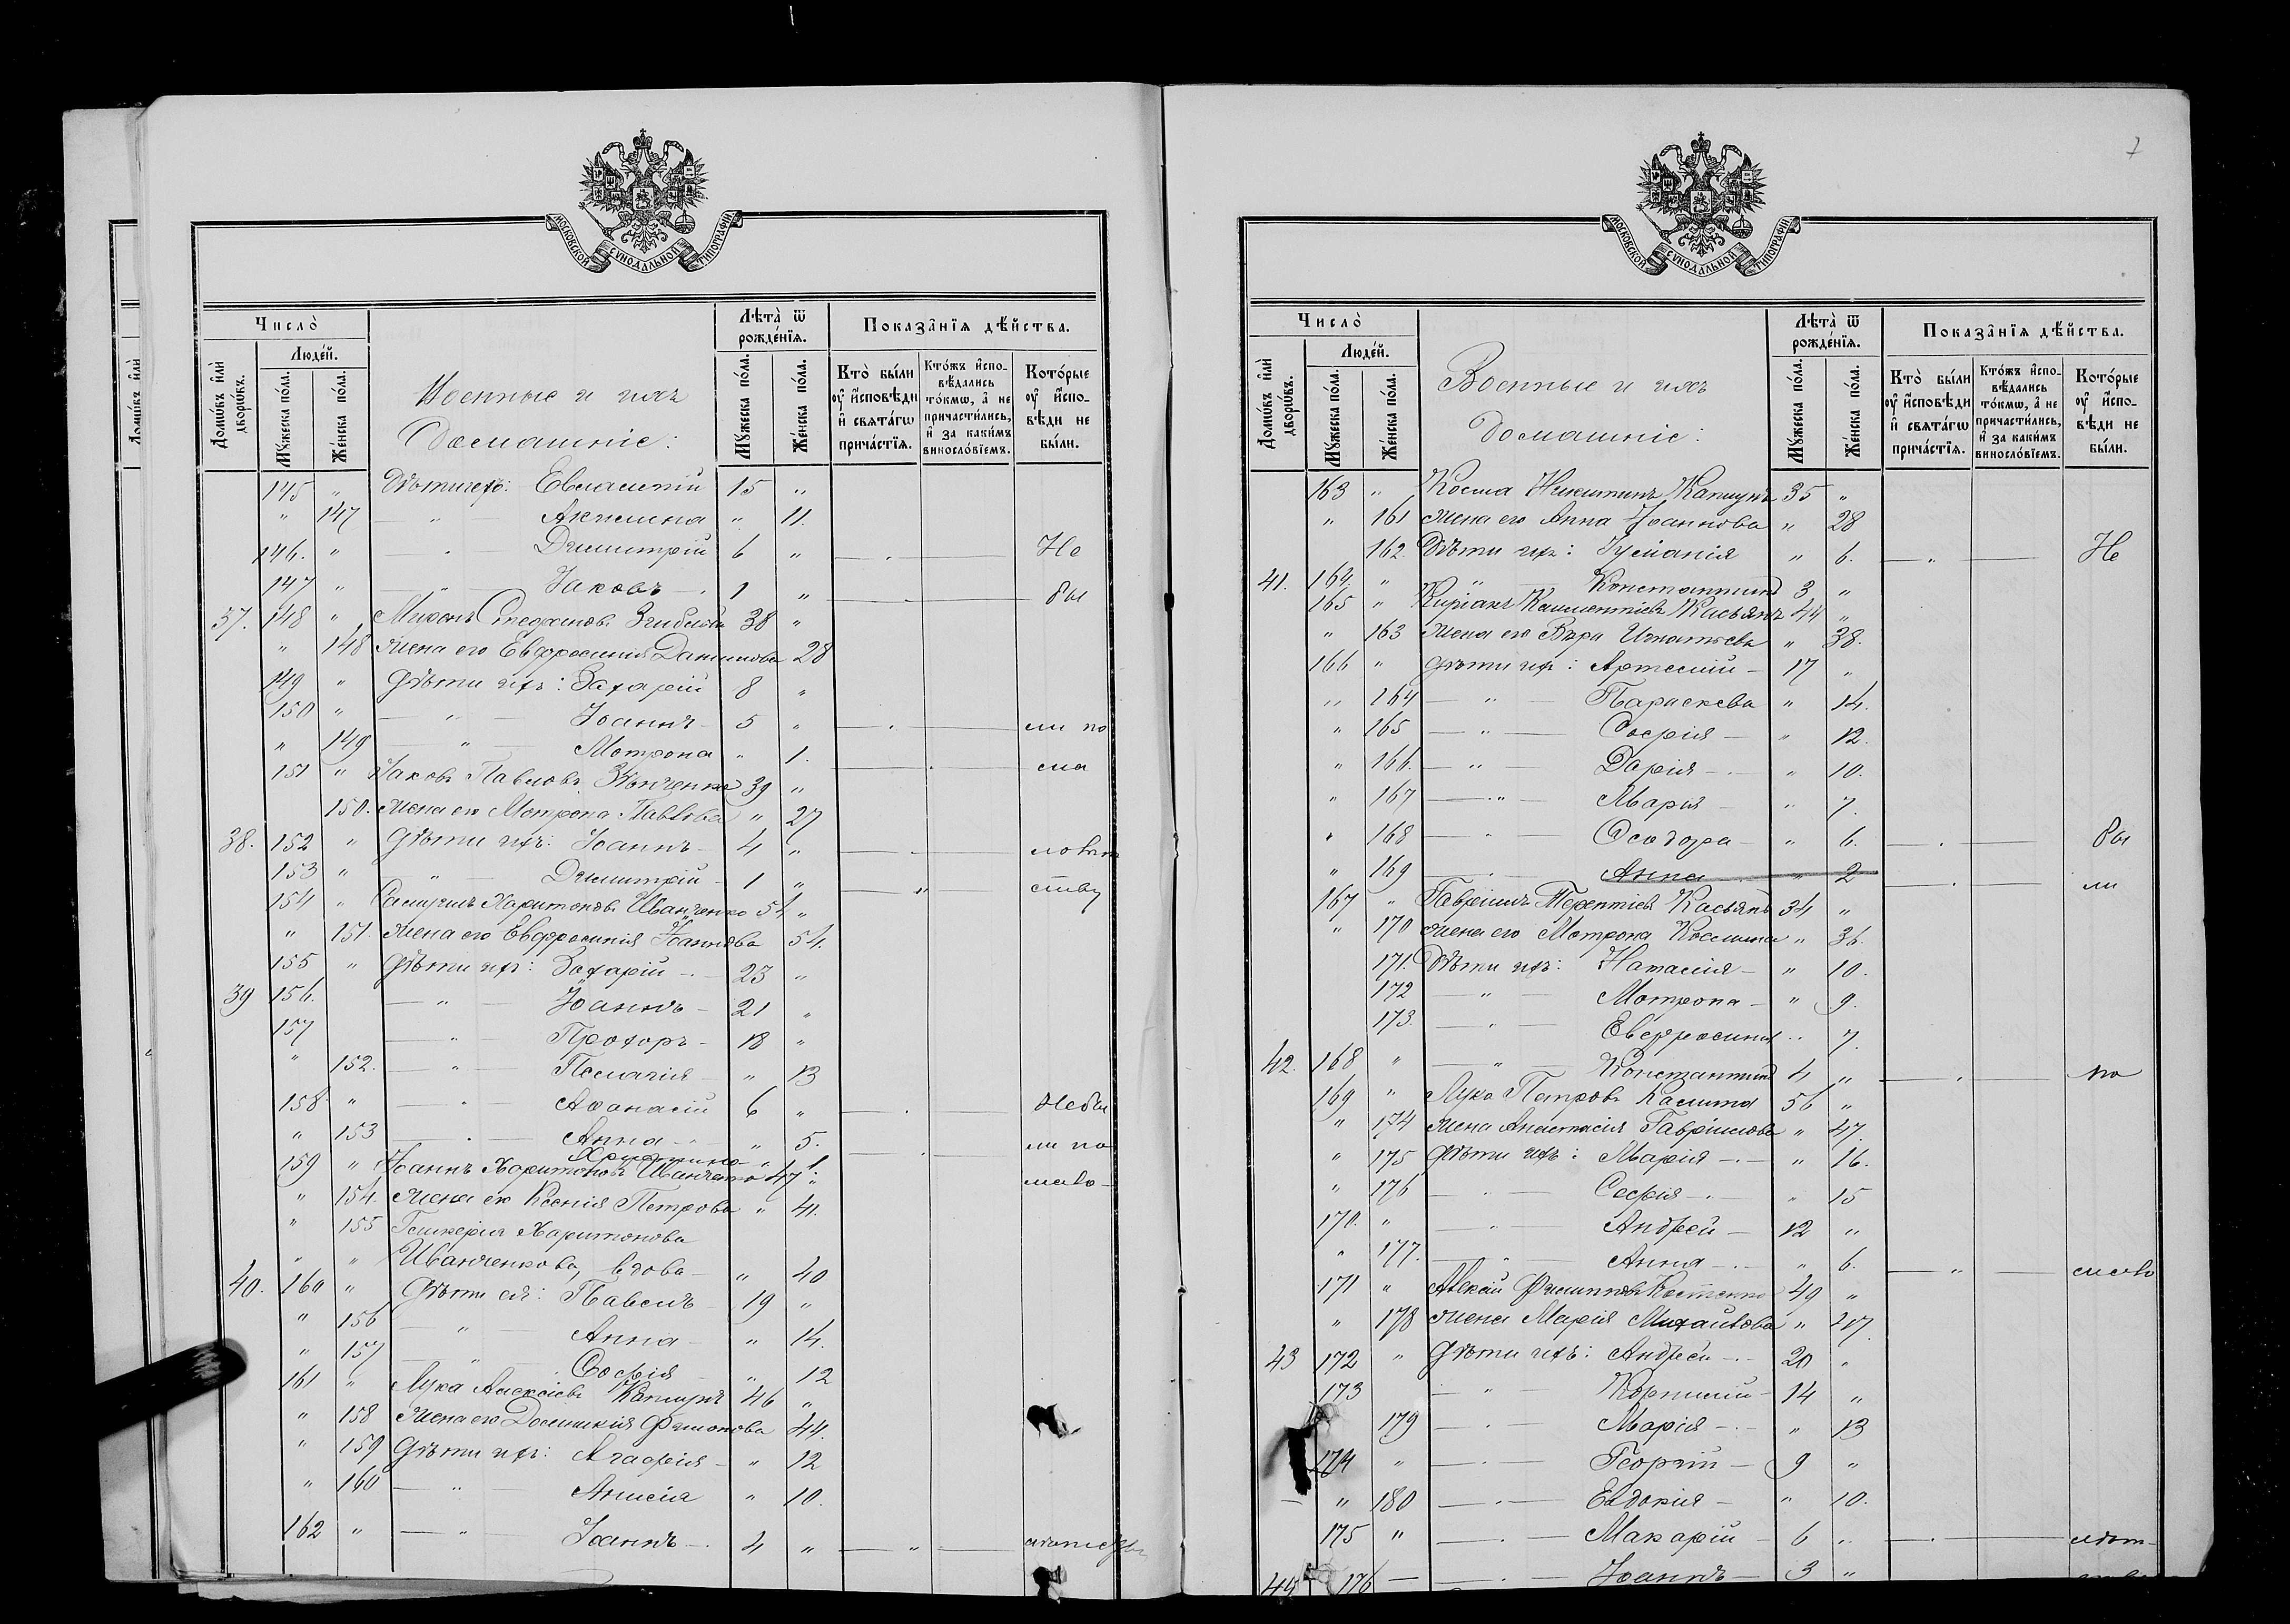 7
МОСКОВСКОЙ СѴНОДАЛЬНОЙ ТИПОГРАФІИ
Число̀
Людéй.
Домѡ́въ и҆лѝ дворѡ́въ.
Мꙋ́жеска по́ла.
Же́нска по́ла.
Военные и ихъ
Домашніе:
Лѣта̀ ѿ рожде́нїѧ.
Мꙋ́жеска по́ла.
Же́нска по́ла.
Показа̂нїѧ дѣ́йства.
Кто̀ бы́ли оу҆ и҆сповѣди и҆ свѧта́гѡ прича́стїѧ.
Кто́жъ и҆сповѣдались то́кмѡ, а҆ не причасти́лись, и҆ за каки́мъ винослóвїемъ.
Кото́рые оу҆ и҆сповѣди не бы́ли.
145 " Дѣти его: Евлампій 15 "
" 147 — " — Акилина " 11.
146. " — " — Димитрій 6 " — " — Не
147 " — " — Іаковъ — 1 " — бы
37. 148 " Стефановъ 38 "
" 148 Жена его Евфросинія Данилова 28
149 " Дѣти ихъ: Захарій 8 "
150 " — " — Іоаннъ 5 " — " — ли по
" 149 — " — Мотрона " 1. — сла
151 " Іаковъ Павловъ 39 "
150. Жена его Мотрона " 27
38. 152 " Дѣти ихъ: Іоаннъ 4 "
153 " — " — Димитрій 1 " — " — ству
154 " Самуилъ Харитоновъ Иванченко 54 "
" 151. Жена его Евфросинія Іоаннова 54.
155 " Дѣти ихъ: Захарій — 23 "
39 156. — " — Іоаннъ — 21 "
157 — " — Прохоръ — 18 "
" 152. — " — Пелагія " 13
158. " — " — Аѳанасій 6 " — " — Не бы
" 153 — " — Анна " 5. ли по
Христина " 1.
159 " Іоаннъ Харитоновъ Иванченко 47 "
" 154. Жена его Ксенія Петрова " 41.
" 155 Гликерія Харитонова
" " Иванченкова, вдова — " 40
40. 160 " Дѣти ея: Павелъ 19 "
" 156 — " — Анна — " 14.
" 157 — " — Софія " 12
161 " Лука Алексіевъ Капшукъ 46 "
" 158 Жена его Домникія Филонова 44.
" 159 Дѣти ихъ: Агафія — " 12
" 160 — " — Анисія " 10.
162 " — " — Іоаннъ — 4 " — " —
МОСКОВСКОЙ СѴНОДАЛЬНОЙ ТИПОГРАФІИ
Число̀
Людéй.
Домѡ́въ и҆лѝ дворѡ́въ.
Мꙋ́жеска по́ла.
Же́нска по́ла.
Военные и ихъ
домашніе:
Лѣта̀ ѿ рожде́нїѧ.
Мꙋ́жеска по́ла.
Же́нска по́ла.
Показа̂нїѧ дѣ́йства.
Кто̀ бы́ли оу҆ и҆сповѣди и҆ свѧта́гѡ прича́стїѧ.
Кто́жъ и҆сповѣдались то́кмѡ, а҆ не причасти́лись, и҆ за каки́мъ винослóвїемъ.
Кото́рые оу҆ и҆сповѣди не бы́ли.
163 " Косма Никитинъ Капшукъ 35 "
" 161 Жена его Анна Іоаннова " 28
162. Дѣти ихъ: Іуліанія " 6. — " — Не
41. 164. " — " — Константинъ 3 "
165 " Киріакъ Касьянъ 44 "
" 163 Жена его Вѣра Игнатьева " 38.
166 " Дѣти ихъ: Артемій — 17 "
" 164 — " — Параскева " 14.
" 165 — " — Софія — " 12.
" 166. — " — Дарія — " 10.
" 167 — " — Марія " 7.
" 168 — " — Ѳеодора — " 6. — " — бы
" 169 — " — Анна " 2 — " — ли
167 " Гавріилъ Терентіевъ Касьянъ 34 "
" 170 Жена его Мотрона Космина " 36.
171. Дѣти ихъ: Наталія — " 10.
172 — " — Мотрона — " 9.
173. — " — Евфросинія " 7.
42. 168 " — " — Константинъ 4 " — " — по
169 " Лука Петровъ Калита 56 "
" 174 Жена Анастасія Гавріилова " 47.
" 175 Дѣти ихъ: Марія — " 16.
" 176 — " — Софія — " 15
170. " — " — Андрей — 12 "
" 177. — " — Анна — " 6. — " —
171 " Алексій Филипповъ Костенко 49 "
" 178 Жена Марія Михайлова " 47.
43 172 " Дѣти ихъ: Андрей — 20 "
173 — " — Корнилій — 14 "
179 — " — Марія — " 13
174 " — " — Георгій — 9 "
— " 180 — " — Евдокія — " 10.
175 " — " — Макарій — 6 " — " —
44 176 — " — Іоаннъ — 3 "